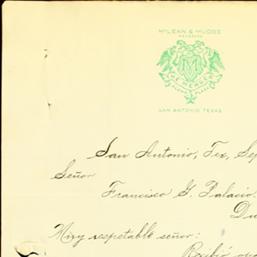 McLEAN & MUDGE
SAN ANTONIO TEXAS
San Antonio, Tex, Sep
Señor
Francisco G. Palacio.
Du
Muy respetable señor:
Recibí